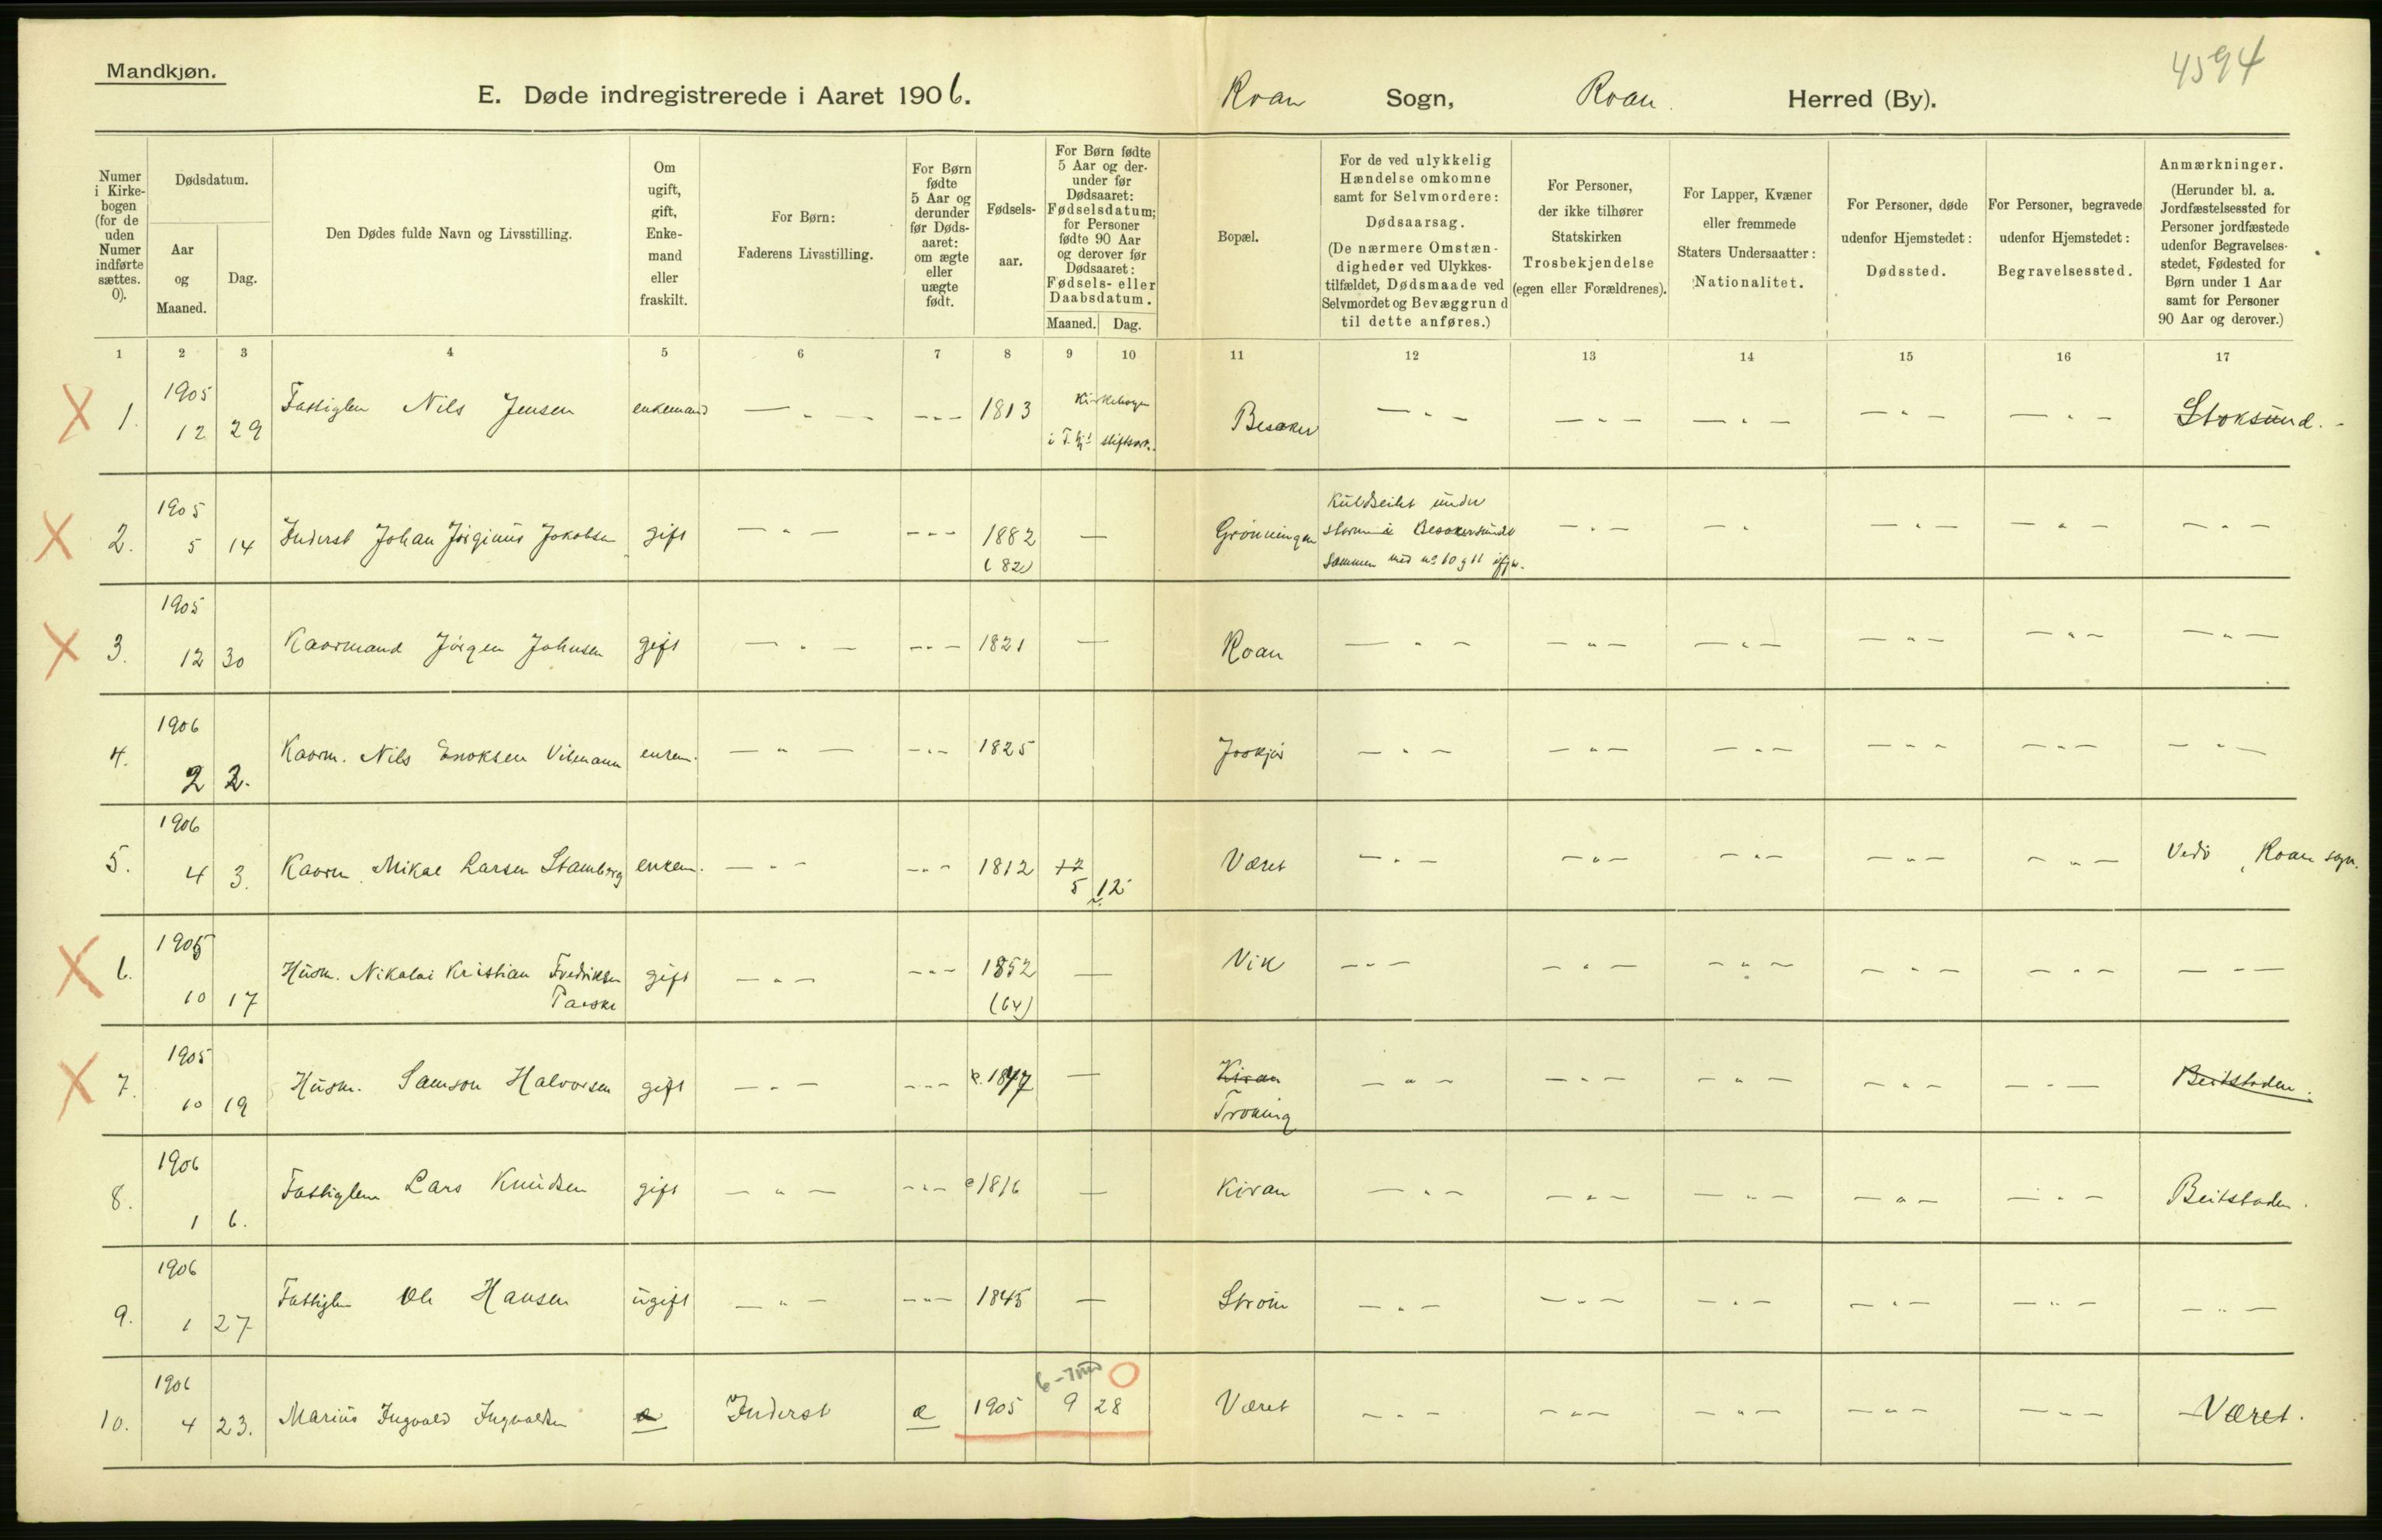 Mandkjøn.
4594
E. Døde indregistrerede i Aaret 1906. Roan Sogn, Roan. Herred (By).
Numer i Kirkebogen (for de uden Numer indførte sættes. 0).
Dødsdatum.
Aar og Maaned.
Dag.
Den Dødes fulde Navn og Livsstilling.
Om ugift, gift, Enkemand eller fraskilt.
For Børn: Faderens Livsstilling.
For Børn fødte 5 Aar og derunder før Dødsaaret: om ægte eller uægte født.
Fødselsaar.
For Børn fødte 5 Aar og derunder før Dødsaaret: Fødselsdatum; for Personer fødte 90 Aar og derover før Dødsaaret: Fødsels- eller Daabsdatum.
Maaned. Dag.
Bopæl.
For de ved ulykkelig Hændelse omkomne samt for Selvmordere: Dødsaarsag. (De nærmere Omstændigheder ved Ulykkestilfældet, Dødsmaade ved Selvmordet og Bevæggrund til dette anføres.)
For Personer, der ikke tilhører Statskirken Trosbekjendelse (egen eller Forældrenes).
For Lapper, Kvæner eller fremmede Staters Undersaatter: Nationalitet.
For Personer, døde udenfor Hjemstedet: Dødssted.
For Personer, begravede udenfor Hjemstedet: Begravelsessted.
Anmærkninger. (Herunder bl. a. Jordfæstelsessted for Personer jordfæstede udenfor Begravelsesstedet, Fødested for Børn under 1 Aar samt for Personer 90 Aar og derover.)
1 2 3 4 5 6 7 8 9 10 11 12 13 14 15 16 17
1. 1905 12 29 Fattiglem Nils Jensen enkemand — " — - " - 1813 Kirkebogen Besaker — " — — " — — " — — " — — " — Stoksund.
2. 1905 5 14 Inderst Johan Jørginus Jakobsen gift — " — - " - 1882 (82) — Grønningen Kuldseilet under storm i Besakersundet sammen med no 10 g 11 — " — — " — — " — — " — — " —
3. 1905 12 30 Kaarmand Jørgen Johnsen gift — " — - " - 1821 — Roan — " — — " — — " — — " — — " — — " —
4. 1906 2 2. Kaarm. Nils Enoksen Vilmann enkem. — " — - " - 1825 — " — — " — — " — — " — — " — — " —
5. 1906 4 3. Kaarm. Mikal Larsen Stamberg enkem. — " — - " - 1812 5 12 Været — " — — " — — " — — " — — " — Roan sogn.
6. 1905 10 17 Husm. Nikolai Kristian Fredriksen gift — " — - " - 1852 (64) — Vik — " — — " — — " — — " — — " — — " —
7. 1905 10 19 Husm. Samson Halvorsen gift — " — - " - c. 1847 — Kiran — " — — " — — " — — " — — " — Beitstaden.
8. 1906 1 6. Fattiglem Lars Knudsen gift — " — - " - c 1816 — Kiran — " — — " — — " — — " — — " — Beitstaden.
9. 1906 1 27 Fattiglem Ole Hansen ugift — " — - " - 1845 — Strøm — " — — " — — " — — " — — " — — " —
10. 1906 4 23. Marius Ingvald Ingvaldsen æ Inderst æ 1905 9 28 Været — " — — " — — " — — " — — " — Været.